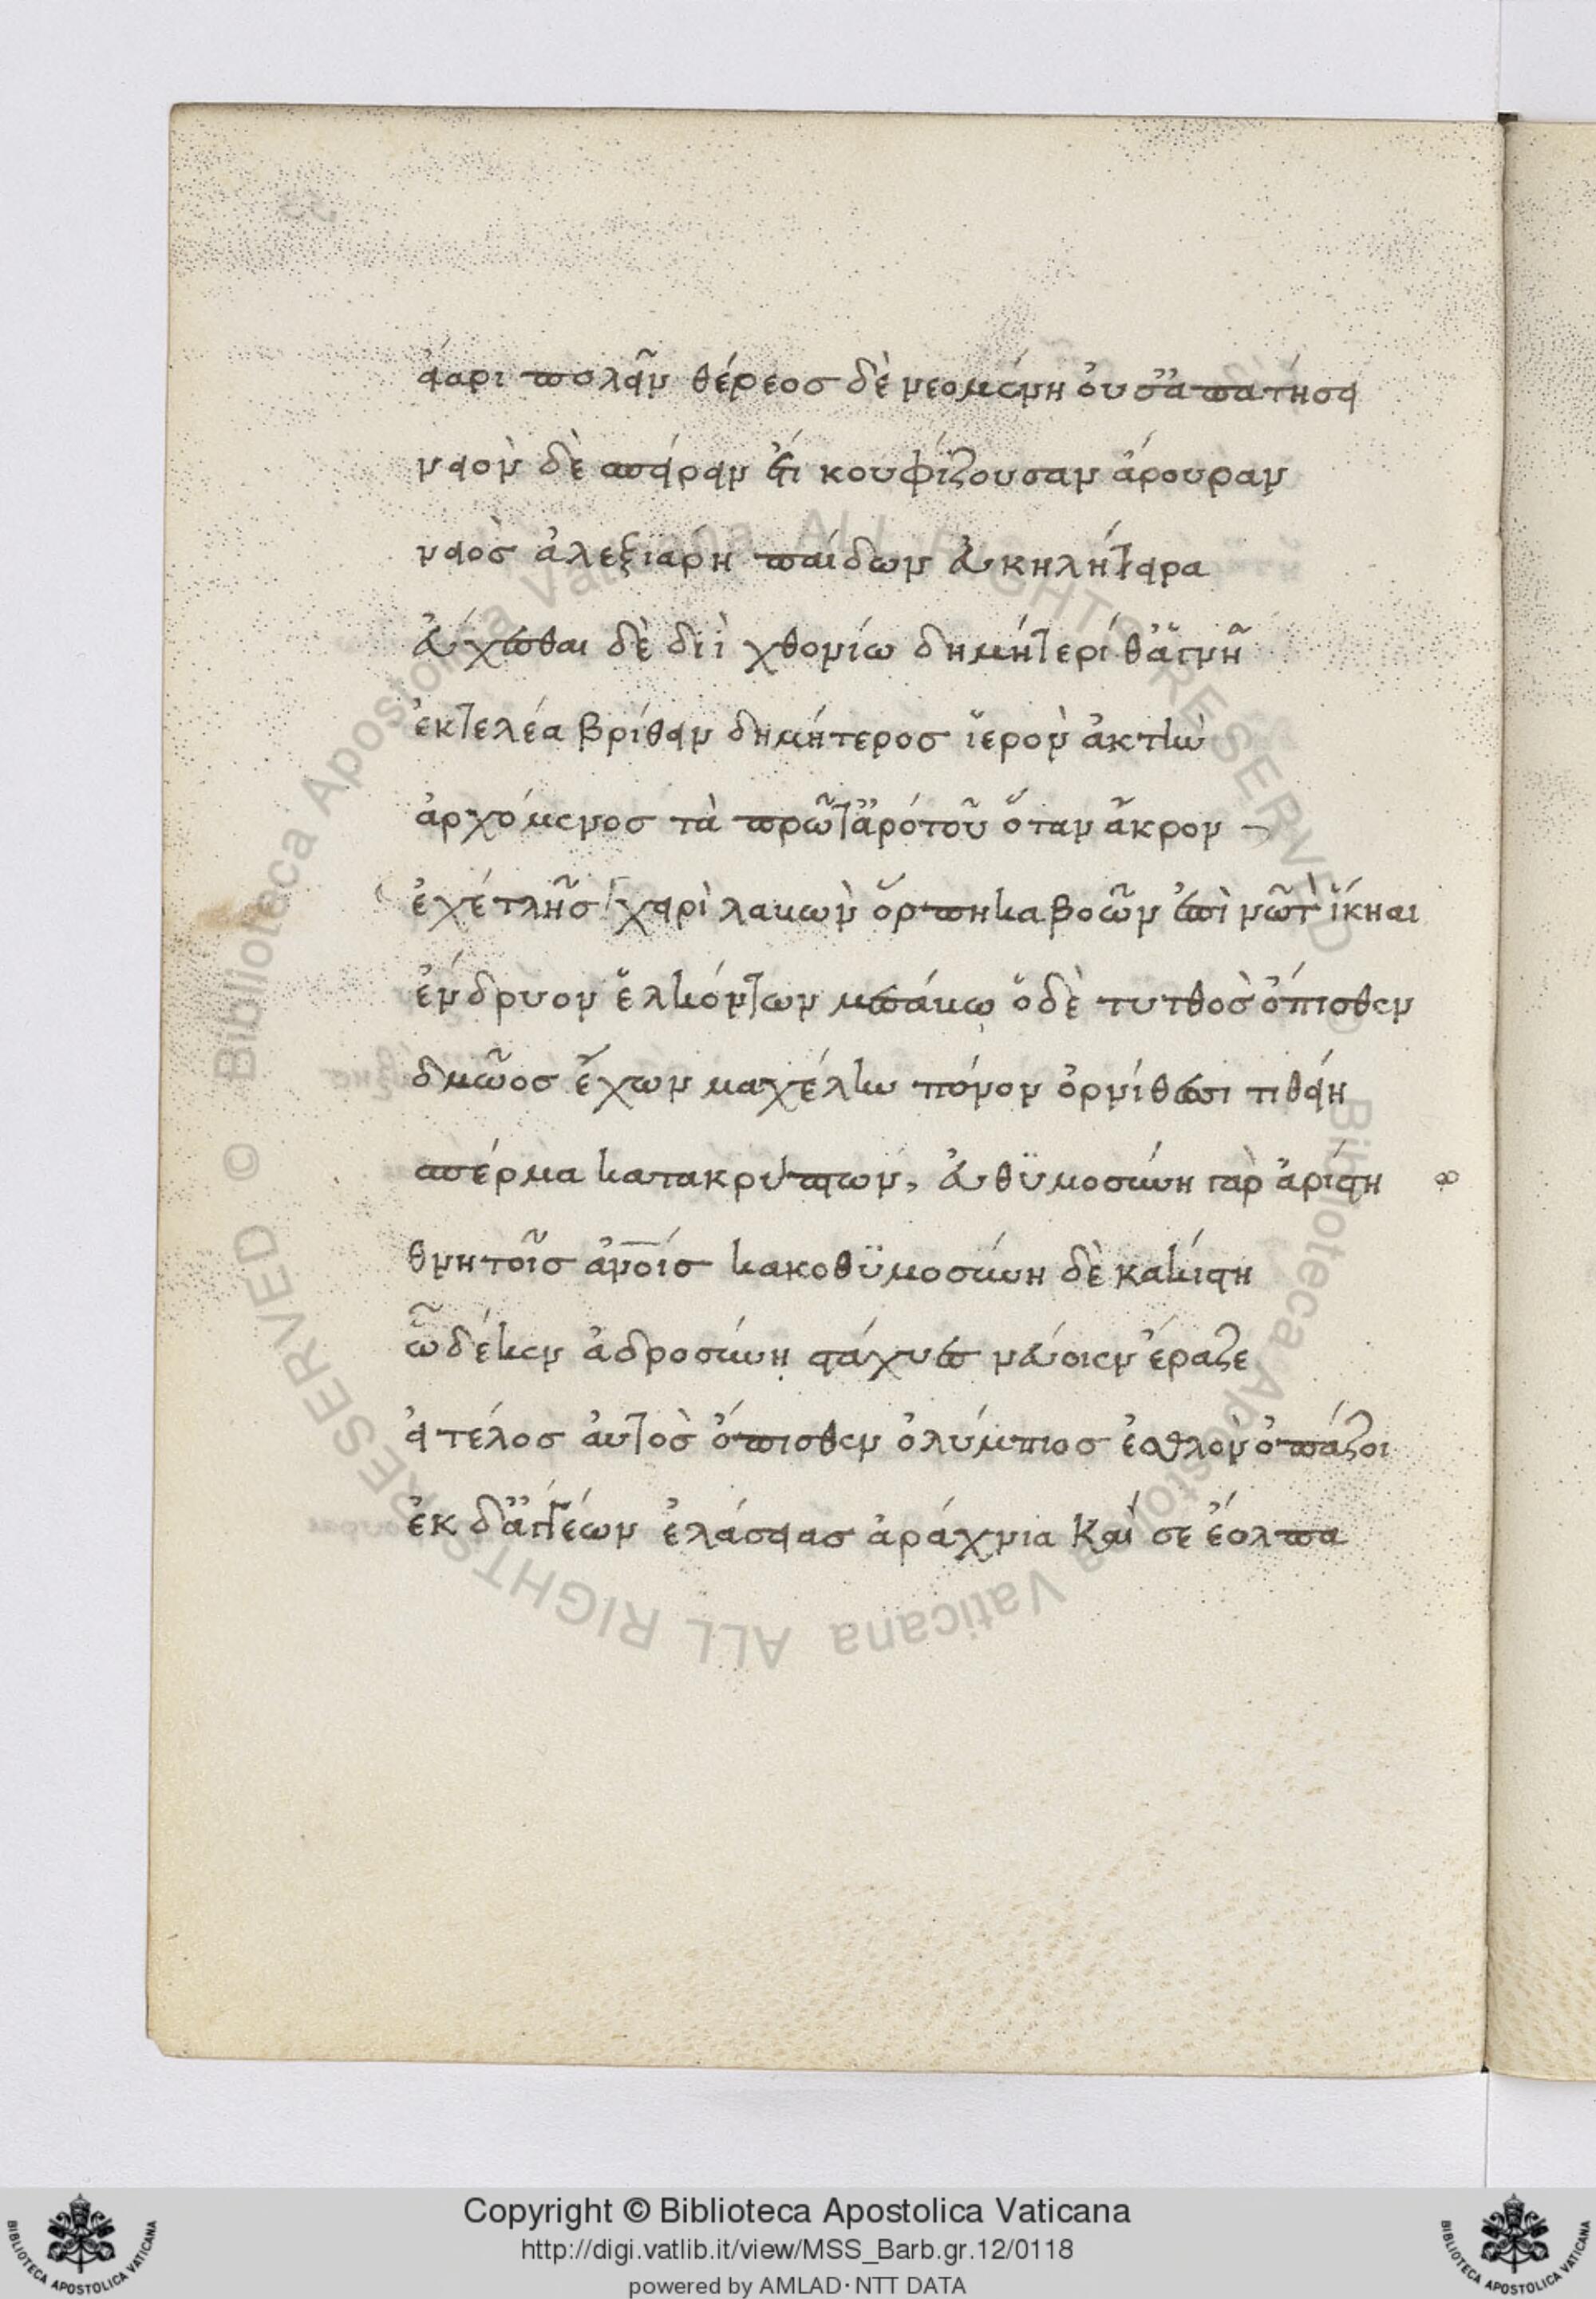 εἴαρι πολεῖν θέρεος δὲ νεομένη οὔ σ' ἀπατήσει
νειὸν δὲ σπείρειν ἔτι κουφίζουσαν ἄρουραν
νειὸς ἀλεξιάρη παίδων εὐκηλήτειρα
εὔχεσθαι δὲ διὶ χθονίω δημήτερί θ' ἁγνῆ
ἐκτελέα βρίθειν δημήτερος ἱερὸν ἀκτὴν
ἀρχόμενος τὰ πρῶτ' ἀρότου ὅταν ἄκρον
ἐχέτλης χειρὶ λαβὼν ὅρπηκα βοῶν ἐπὶ νῶτ' ἵκηαι
ἔνδρυον ἑλκόντων μεσάβω ὁ δὲ τυτθὸς ὄπισθεν
δμῶος ἔχων μακέλην πόνον ὀρνίθεσι τιθείη
σπέρμα κατακρύπτων, εὐθυμοσύνη γὰρ ἀρίστη
θνητοῖς ἀν̅οις κακοθυμοσύνη δὲ κακίστη
ὧδέ κεν ἁδροσύνη στάχυες νεύοιεν ἔραζε
εἰ τέλος αὐτὸς ὄπισθεν ὀλύμπιος ἐσθλὸν ὀπάζοι
ἐκ δ' ἀγγέων ἐλάσειας ἀράχνια καί σε ἔολπα
Copyright © Biblioteca Apostolica Vaticana
http://digi.vatlib.it/view/MSS_Barb.gr.12/0118
powered by AMLAD·NTT DATA